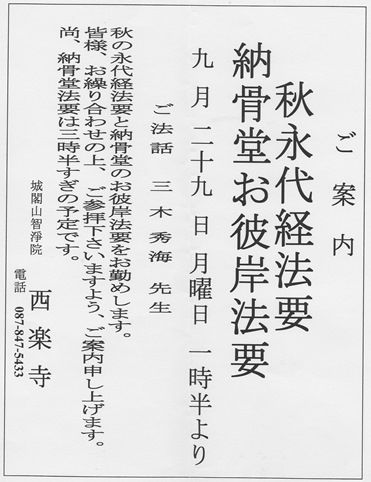 ご案内
秋永代経法要
納骨堂お彼岸法要
九月二十九日月曜日 一時半より
ご法話 三木秀海 先生
秋の永代経法要と納骨堂のお彼岸法要をお勤めします。
皆様、お繰り合わせの上、ご参拝下さいますよう、ご案内申し上げます。
尚、納骨堂法要は三時半すぎの予定です。
城閣山智浄院 西楽寺
電話 087-847-5433